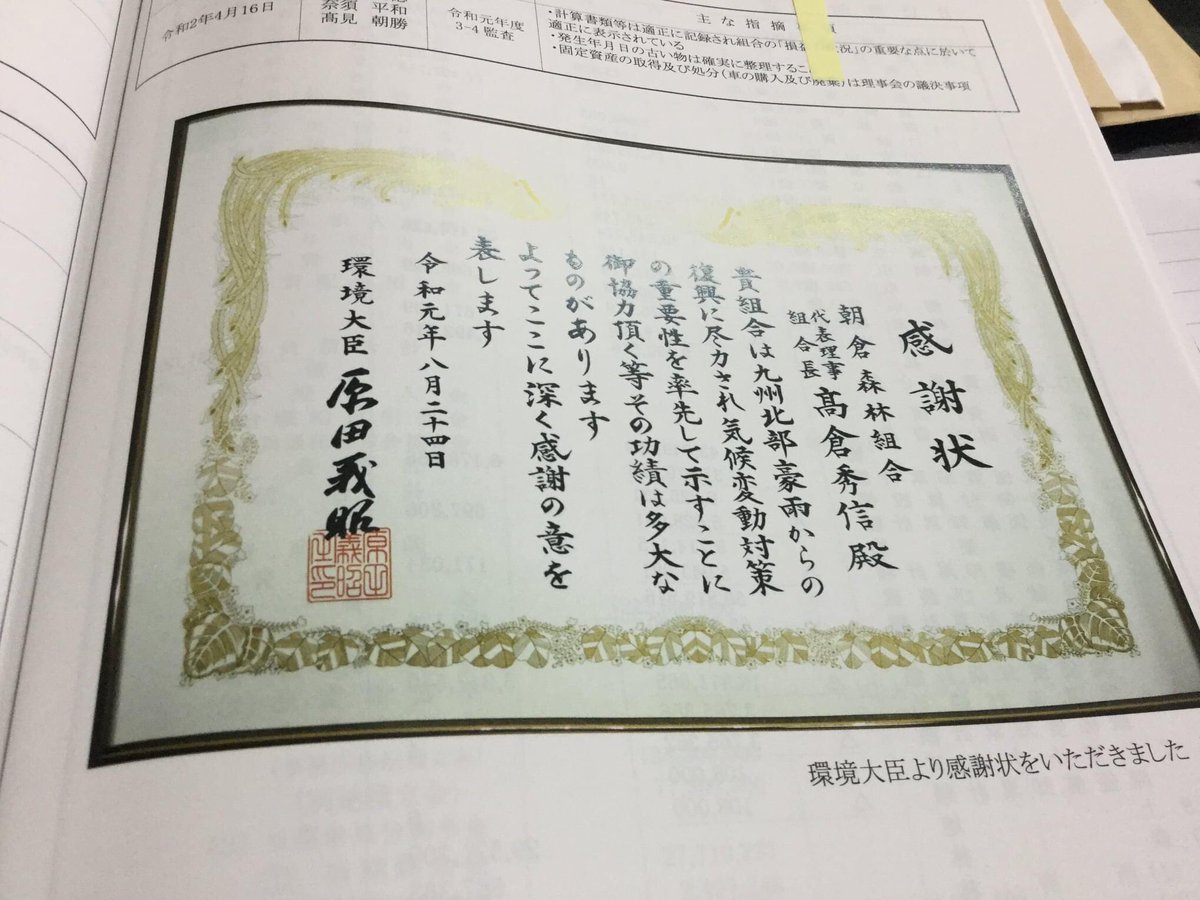 令和2年4月16日
奈須 平和
髙見 朝勝
令和元年度
3-4監査
主な指摘
項
・計算書類等は適正に記録され組合の「損
況」の重要な点に於いて
適正に表示されている
・発生年月日の古い物は確実に整理するこ
・固定資産の取得及び処分(車の購入及び廃棄)は理事会の議決事項
感謝状
朝倉森林組合
代表理事
組合長
髙倉秀信殿
貴組合は九州北部豪雨からの
復興に尽力され気候変動対策
の重要性を率先して示すことに
御協力頂く等その功績は多大な
ものがあります
よってここに深く感謝の意を
表します
令和元年八月二十四日
環境大臣 原田義昭
環境大臣より感謝状をいただきました